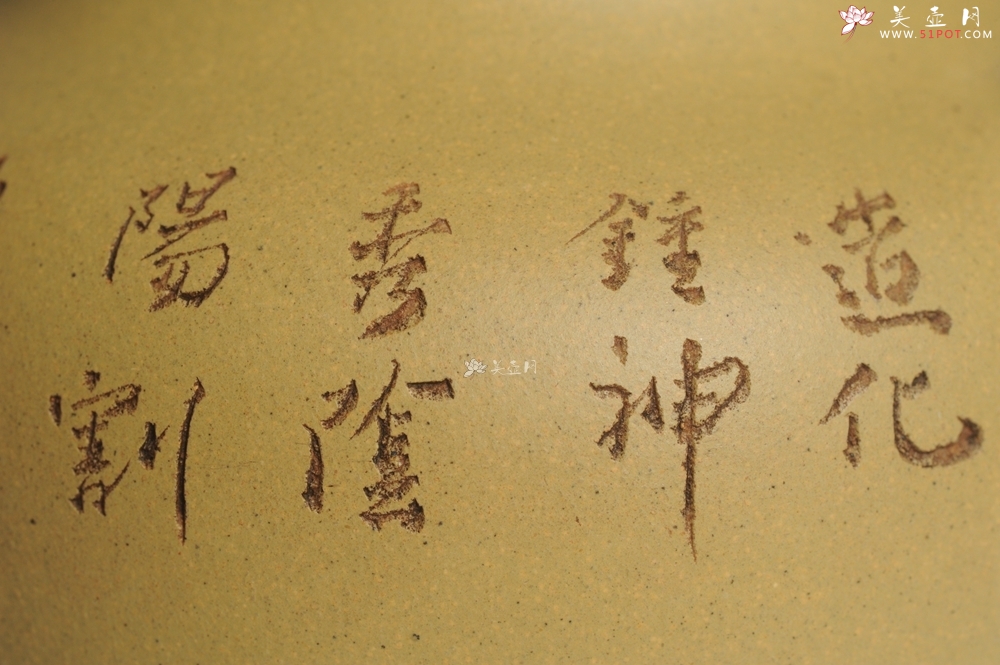 造化
鍾神
秀陰
陽割
美壶月
WWW.51POT.COM
美壶月